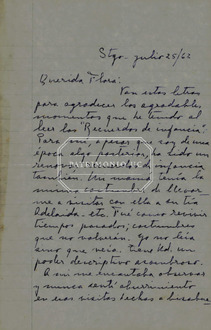 Stgo. julio 25/62
Querida Flora:
Van estas letras
para agradecer los agradables
momentos que he tenido al
leer los "Recuerdos de infancia".
Para mi, a pesar que soy de una
época algo posterior, ha sido un
PATRIMONIO
también. Mi mamá tenía la
misma costumbre de llevar
me a visitas con ella a en tía
Adelaida. etc. Fué como revivir
tiempos pasados, costumbres
que no volverán. Yo no leía
sino que veía, tiene Ud. un
poder descriptivo asombroso.
A mi me encantaba observar
y nunca sentí aburrimiento
en esas visitas hechas a